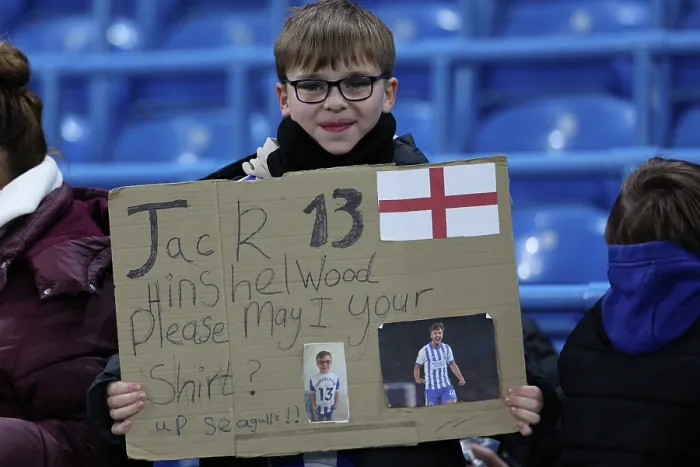 Jack 13
Hinshelwood
Please May I your
Shirt?
up seagulls!!
13